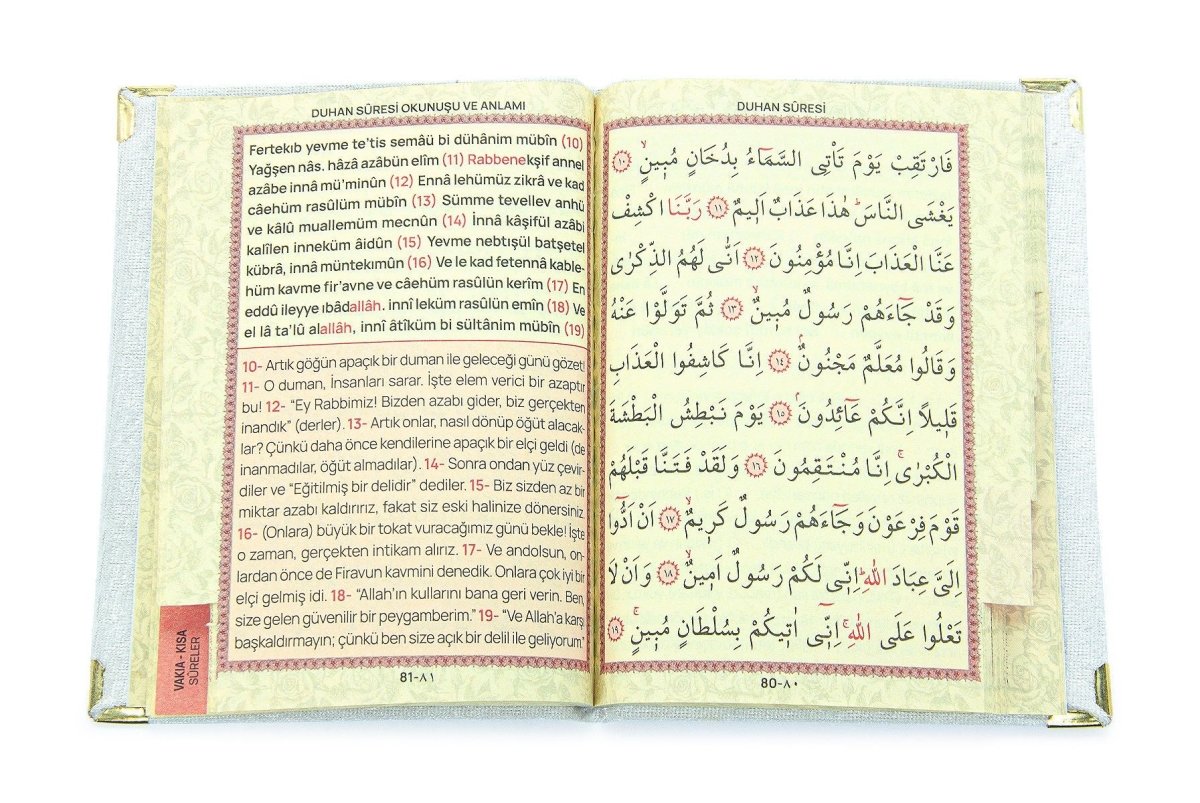 DUHAN SÛRESİ OKUNUŞU VE ANLAMI
Fertekıb yevme te'tis semâü bi dühânim mübîn (10)
Yağşen nâs. hâzâ azâbün elîm (11) Rabbenekşif annel
azâbe innâ mü'minûn (12) Ennâ lehümüz zikrâ ve kad
câehüm rasûlüm mübîn (13) Sümme tevellev anhü
ve kâlû muallemüm mecnûn (14) İnnâ kâşifül azâbi
kalîlen inneküm âidûn (15) Yevme nebtışül batşetel
kübrâ, innâ müntekımûn (16) Ve le kad fetennâ kable-
hüm kavme fir'avne ve câehüm rasûlün kerîm (17) En
eddû ileyye ıbâdallâh. innî leküm rasûlün emîn (18) Ve
el lâ ta'lû alallâh, innî âtîküm bi sültânim mübîn (19)
10- Artık göğün apaçık bir duman ile geleceği günü gözet!
11- O duman, İnsanları sarar. İşte elem verici bir azaptır
bu! 12- “Ey Rabbimiz! Bizden azabı gider, biz gerçekten
inandık” (derler). 13- Artık onlar, nasıl dönüp öğüt alacak-
lar? Çünkü daha önce kendilerine apaçık bir elçi geldi (de
inanmadılar, öğüt almadılar). 14- Sonra ondan yüz çevir-
diler ve “Eğitilmiş bir delidir” dediler. 15- Biz sizden az bir
miktar azabı kaldırırız, fakat siz eski halinize dönersiniz.
16- (Onlara) büyük bir tokat vuracağımız günü bekle! İşte
o zaman, gerçekten intikam alırız. 17- Ve andolsun, on-
lardan önce de Firavun kavmini denedik. Onlara çok iyi bir
elçi gelmiş idi. 18- “Allah'ın kullarını bana geri verin. Ben,
size gelen güvenilir bir peygamberim.” 19- “Ve Allah'a karşı
başkaldırmayın; çünkü ben size açık bir delil ile geliyorum”
81-٨١
VAKIA - KISA
SÛRELER
DUHAN SÛRESİ
فَارْتَقِبْ يَوْمَ تَأْتِي السَّمَٓاءُ بِدُخَانٍ مُب۪ينٍۙ ﴿١٠﴾
يَغْشَى النَّاسَۜ هٰذَا عَذَابٌ اَل۪يمٌ ﴿١١﴾ رَبَّنَا اكْشِفْ
عَنَّا الْعَذَابَ اِنَّا مُؤْمِنُونَ ﴿١٢﴾ اَنّٰى لَهُمُ الذِّكْرٰى
وَقَدْ جَٓاءَهُمْ رَسُولٌ مُب۪ينٌۙ ﴿١٣﴾ ثُمَّ تَوَلَّوْا عَنْهُ
وَقَالُوا مُعَلَّمٌ مَجْنُونٌۢ ﴿١٤﴾ اِنَّا كَاشِفُوا الْعَذَابِ
قَل۪يلًا اِنَّكُمْ عَٓائِدُونَۢ ﴿١٥﴾ يَوْمَ نَبْطِشُ الْبَطْشَةَ
الْكُبْرٰىۚ اِنَّا مُنْتَقِمُونَ ﴿١٦﴾ وَلَقَدْ فَتَنَّا قَبْلَهُمْ
قَوْمَ فِرْعَوْنَ وَجَٓاءَهُمْ رَسُولٌ كَر۪يمٌۙ ﴿١٧﴾ اَنْ اَدُّٓوا
اِلَيَّ عِبَادَ اللّٰهِۜ اِنّ۪ي لَكُمْ رَسُولٌ اَم۪ينٌۙ ﴿١٨﴾ وَاَنْ لَا
تَعْلُوا عَلَى اللّٰهِۚ اِنّ۪ٓي اٰت۪يكُمْ بِسُلْطَانٍ مُب۪ينٍۚ ﴿١٩﴾
80-٨٠